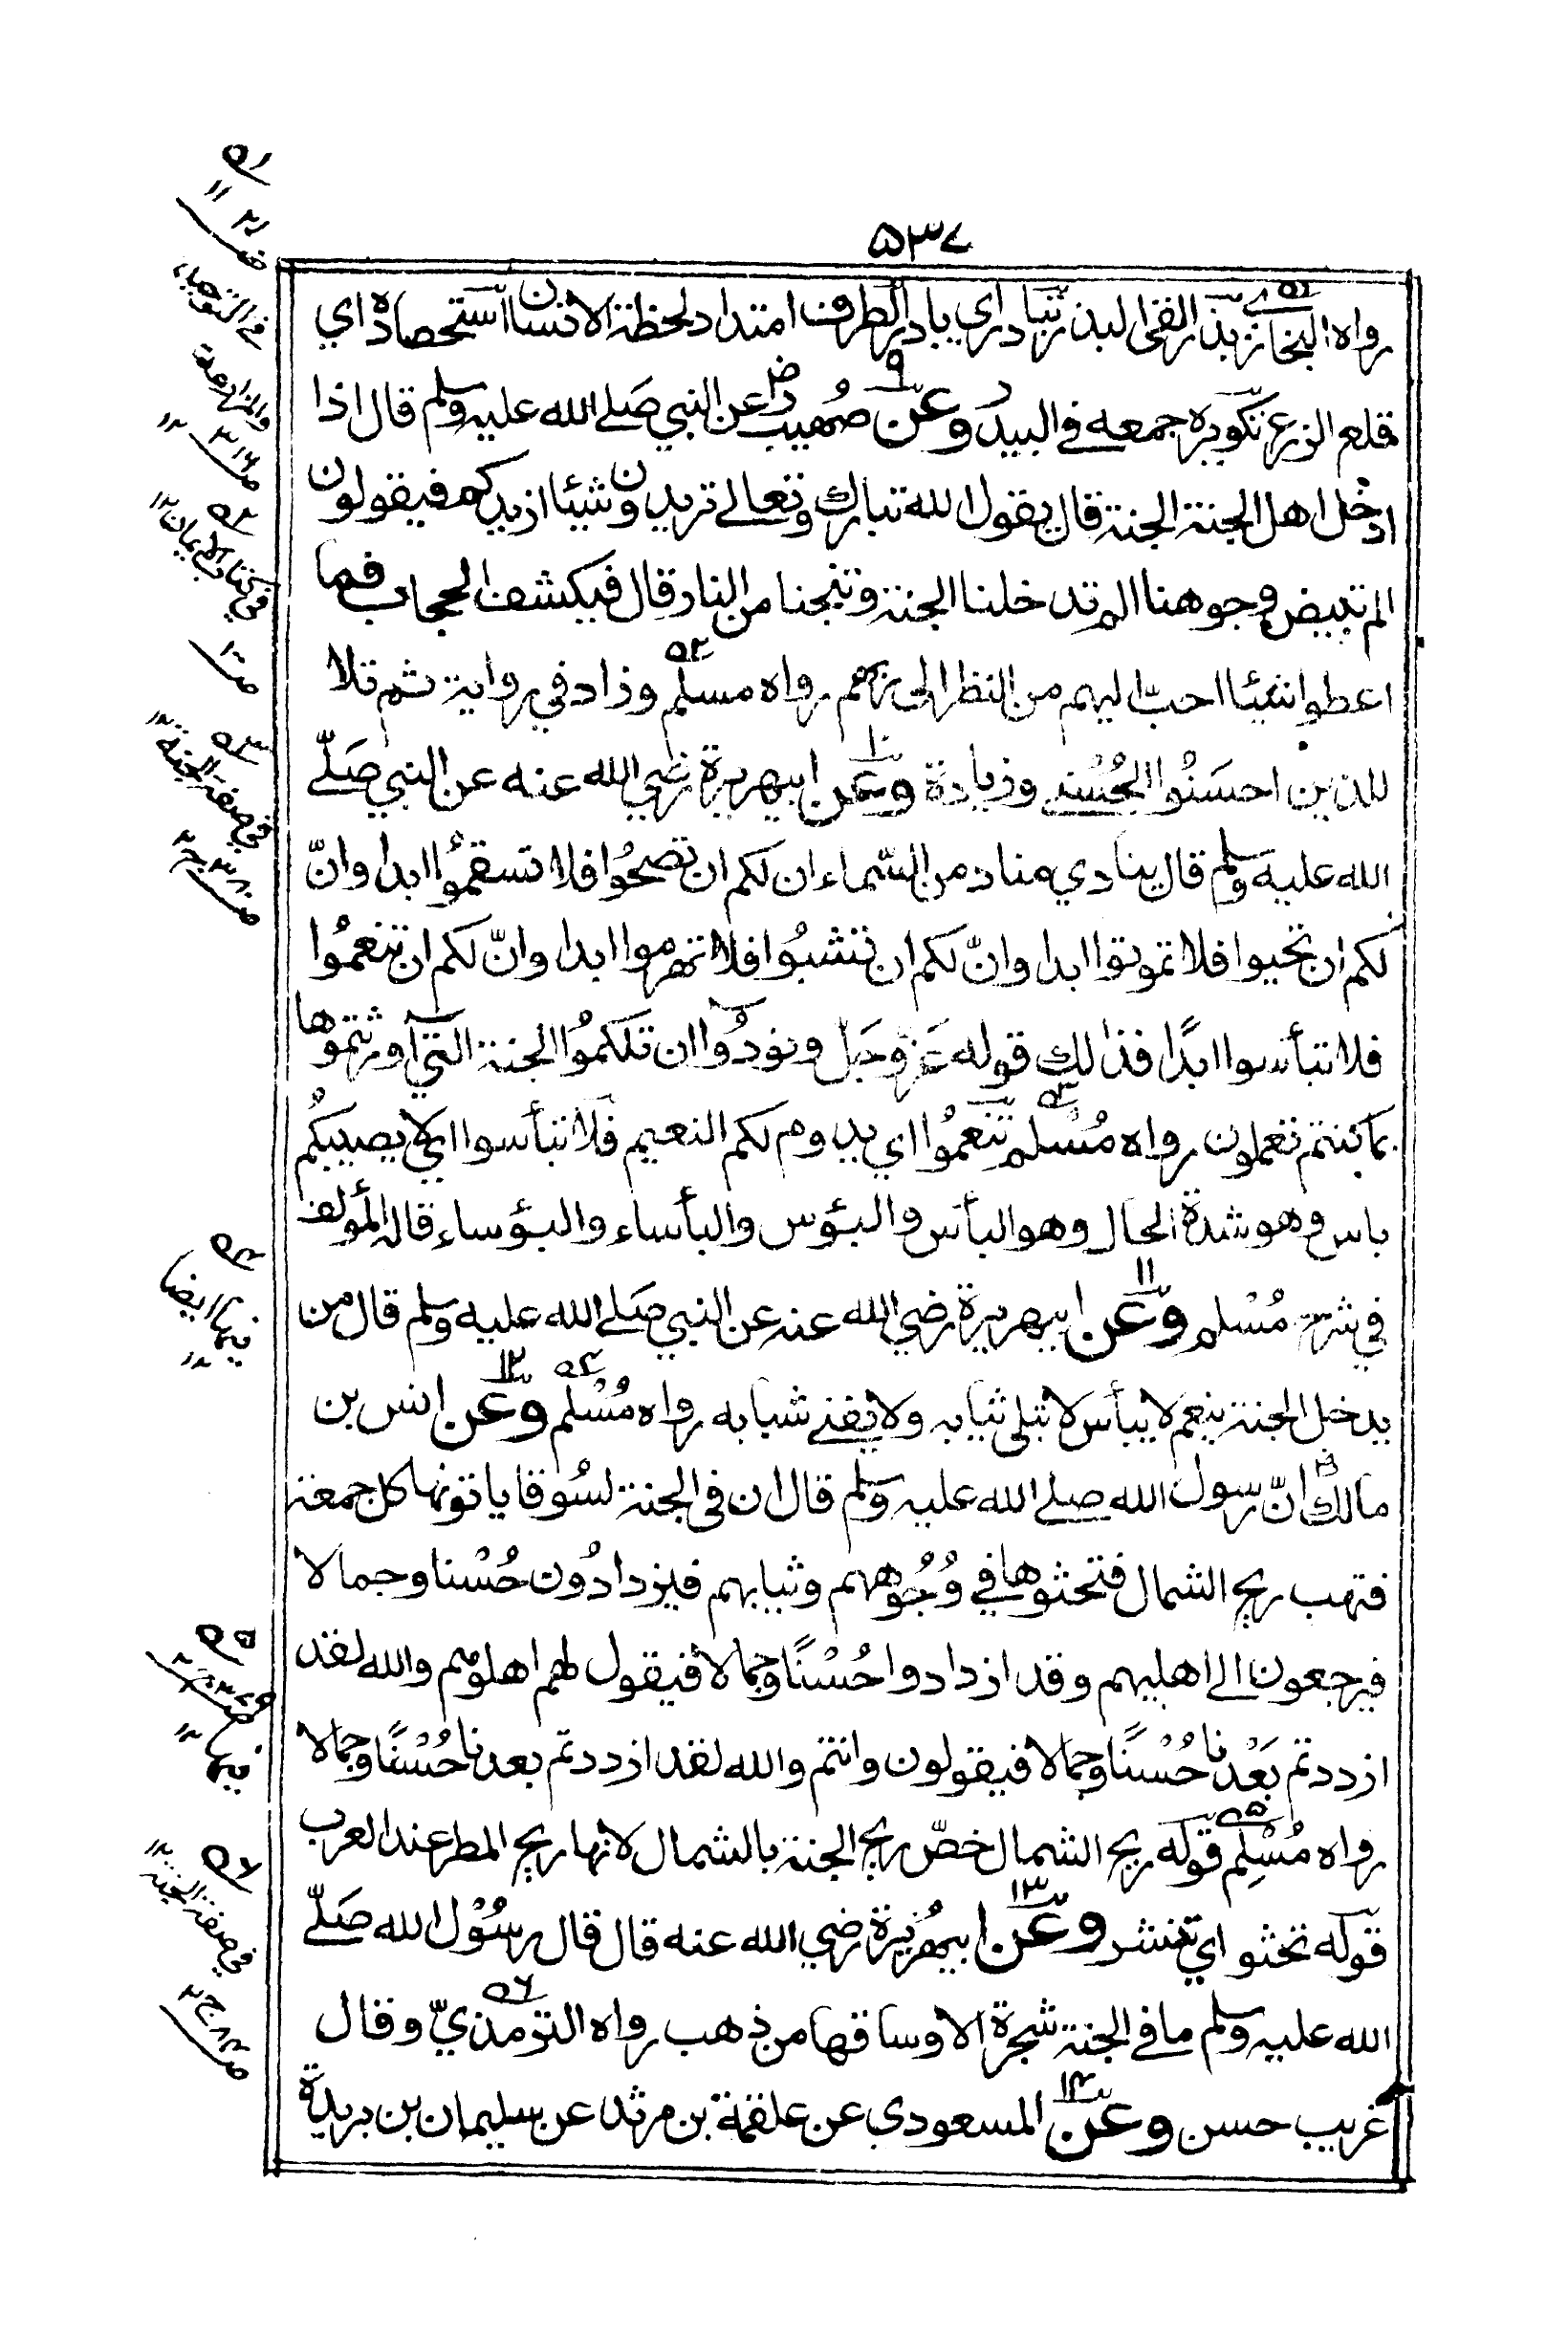 ۵۳۷
رواه البخاري بذر القى البذر تبادر اي بادر الطرف امتداد لحظة الانسان استحصاده اي
قلع الزرع تكويره جمعه في البيدر وعن صُهيب رض عن النبي صَلے الله عليه وسلم قال اذا
ادخل اهل الجنة الجنة قال يقول الله تبارك وتعالے تريدون شيئا ازيدكم فيقولون
الم تبيض وجوهنا الم تدخلنا الجنة وتنجنا من النار قال فيكشف الحجاب فما
اعطوا شيئا احبّ اليهم من النظر الى ربهم رواه مسلم وزاد في رواية ثم تلا
للذين احسَنُوا الحُسْنے وزيادة وعن ابيهريرة رضي الله عنه عن النبي صَلّے
الله عليه وسلم قال ينادي مناد من السّماء ان لكم ان تصحُوا فلا تسقمُوا ابدا وانّ
لكم ان تحيوا فلا تموتوا ابدا وانّ لكم ان تنشبُوا فلا تهرموا ابدا وانّ لكم ان تنعمُوا
فلا تبأسوا ابدًا فذالك قوله عَز وجَل ونودُوا ان تلكمُوا الجنة التي اورثتموها
بما كنتم تعملون رواه مُسْلم تنعمُوا اي يدوم لكم النعيم فلا تبأسوا اي لا يصيبكُم
باس وهو شدة الحال وهو البأس والبؤس والبأساء والبؤساء قاله المؤلف
في شرح مُسْلم وعن ابيهريرة رضي الله عنه عن النبي صَلے الله عليه وسلم قال من
يدخل الجنة ينعم لا يبأس لا تبلى ثيابه ولا يفنے شبابه رواه مُسْلم وعن انس بن
مالك انّ رسول الله صلے الله عليه وسلم قال ان في الجنة لسُوقا ياتونها كل جمعة
فتهب ريح الشمال فتحثوها في وُجُوههم وثيابهم فيزدادُون حُسْنا وجمالا
فيرجعون الے اهليهم وقد ازدادوا حُسْنًا وجمالا فيقول لهم اهلوهم والله لقد
ازددتم بَعْدنا حُسْنًا وجمالا فيقولون وانتم والله لقد ازددتم بعدنا حُسْنًا وجمالا
رواه مُسْلِم قوله ريح الشمال خصّ ريح الجنة بالشمال لانها ريح المطر عند العرب
قوله تحثو اي تنشر وعن ابيهُريرة رضي الله عنه قال قال رسُوْل الله صَلّے
الله عليه وسلم ما في الجنة شجرة الا وساقها من ذهب رواه الترمذيّ وقال
غريب حسن وعن المسعودي عن علقمة بن مرثد عن سليمان بن بريدة
في التوحيد
والمزارعة
في كتاب الايمان ۱۲
في صفة الجنة ۱۲
فيها ايضا
۱۲
فيها ۱۲
في صفة الجنة ۱۲